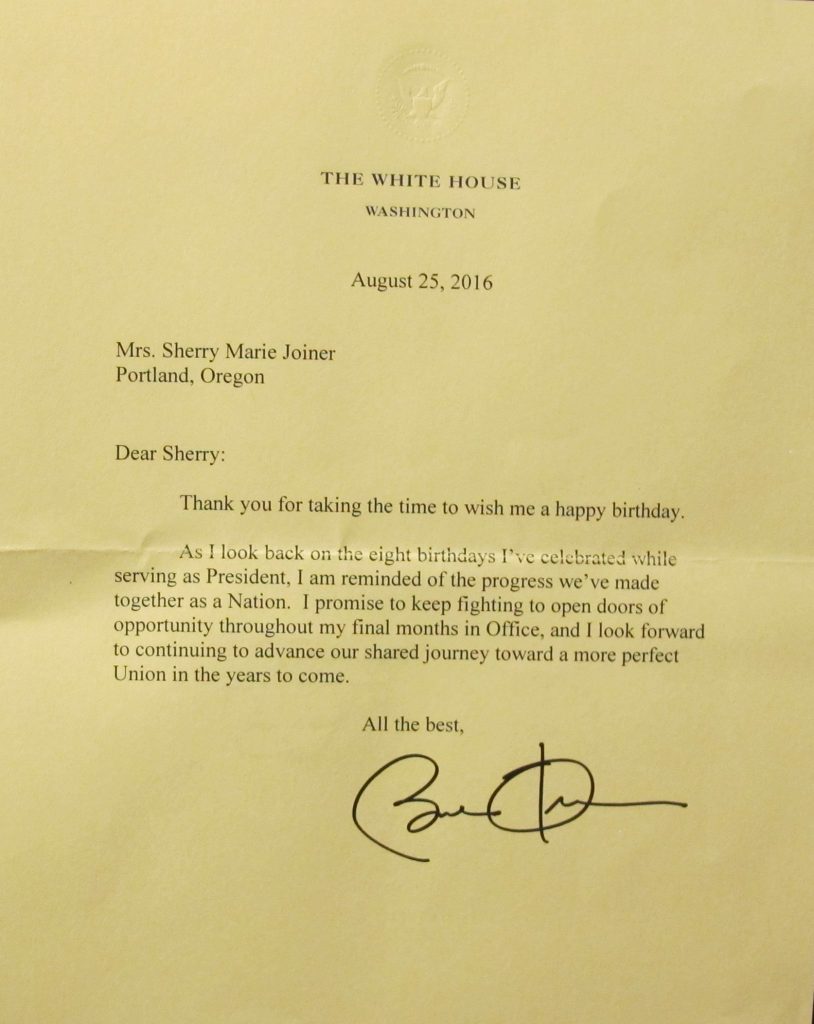 THE WHITE HOUSE
WASHINGTON
August 25, 2016
Mrs. Sherry Marie Joiner
Portland, Oregon
Dear Sherry:
Thank you for taking the time to wish me a happy birthday.
As I look back on the eight birthdays I've celebrated while
serving as President, I am reminded of the progress we've made
together as a Nation.  I promise to keep fighting to open doors of
opportunity throughout my final months in Office, and I look forward
to continuing to advance our shared journey toward a more perfect
Union in the years to come.
All the best,